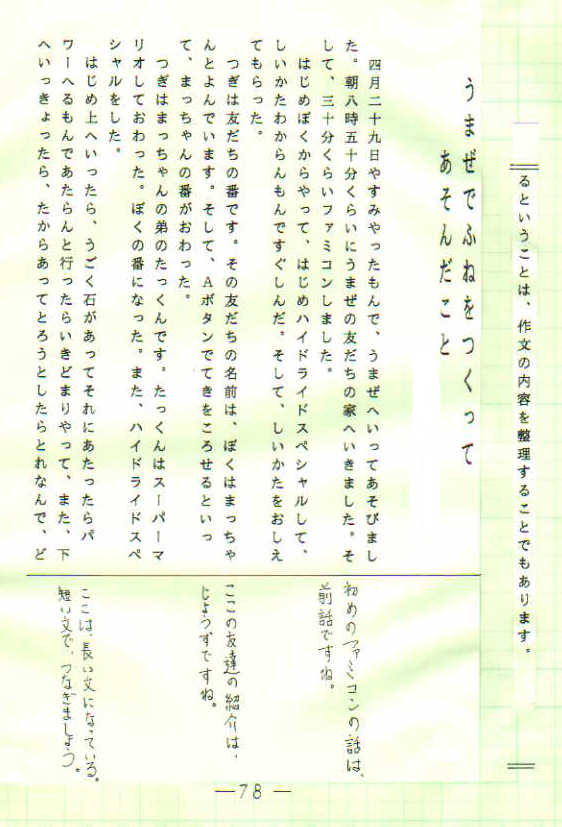 るということは、作文の内容を整理することでもあります。
うまぜでふねをつくって
あそんだこと
四月二十九日やすみやったもんで、うまぜへいってあそびまし
た。朝八時五十分くらいにうまぜの友だちの家へいきました。そ
して、三十分くらいファミコンしました。
はじめぼくからやって、はじめハイドライドスペシャルして、
しいかたわからんもんですぐしんだ。そして、しいかたをおしえ
てもらった。
つぎは友だちの番です。その友だちの名前は、ぼくはまっちゃ
んとよんでいます。そして、Aボタンでてきをころせるといっ
て、まっちゃんの番がおわった。
つぎはまっちゃんの弟のたっくんです。たっくんはスーパーマ
リオしておわった。ぼくの番になった。また、ハイドライドスペ
シャルをした。
はじめ上へいったら、うごく石があってそれにあたったらパ
ワーへるもんであたらんと行ったらいきどまりやって、また、下
へいっきょったら、たからあってとろうとしたらとれなんで、ど
初めのファミコンの話は、
前話ですね。
ここの友達の紹介は、
じょうずですね。
ここは、長い文になっている。
短い文で、つなぎましょう。
―78―